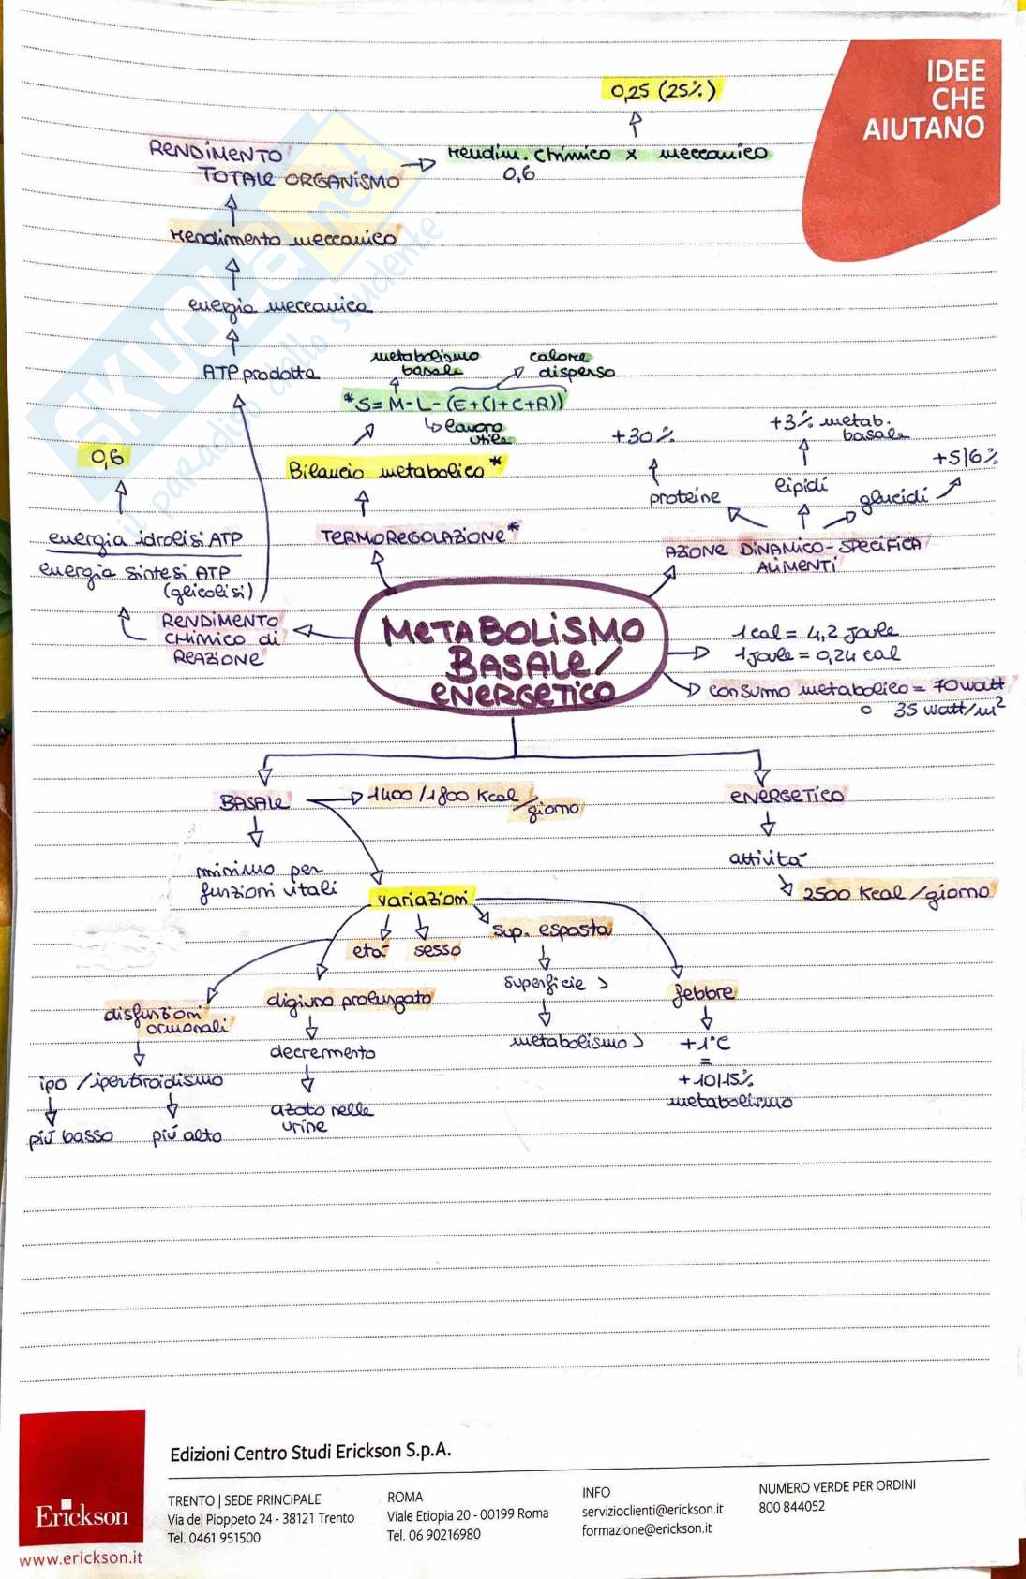 IDEE
CHE
AIUTANO
0,25 (25%)
RENDIMENTO
TOTALE ORGANISMO
rendim. chimico x meccanico
0,6
rendimento meccanico
energia meccanica
ATP prodotta
metabolismo
basale
calore
disperso
*S = M - L - (E + (I + C + R))
lavoro
utile
0,6
Bilancio metabolico *
+30%
+3% metab.
basale
+5|6%
proteine
lipidi
glucidi
energia idrolisi ATP
energia sintesi ATP
(glicolisi)
TERMOREGOLAZIONE *
AZIONE DINAMICO-SPECIFICA
ALIMENTI
RENDIMENTO
CHIMICO di
REAZIONE
METABOLISMO
BASALE /
ENERGETICO
1 cal = 4,2 joule
1 joule = 0,24 cal
consumo metabolico = 70 watt
o 35 watt/m²
BASALE
1400 / 1800 Kcal
/giorno
ENERGETICO
minimo per
funzioni vitali
attività
2500 Kcal / giorno
variazioni
età
sesso
sup. esposta
superficie >
metabolismo >
disfunzioni
ormonali
ipo / ipertiroidismo
più basso
più alto
digiuno prolungato
decremento
azoto nelle
urine
febbre
+1°C
=
+10|15%
metabolismo
skuola.net
il paradiso dello studente
Erickson
www.erickson.it
Edizioni Centro Studi Erickson S.p.A.
TRENTO | SEDE PRINCIPALE
Via del Pioppeto 24 - 38121 Trento
Tel. 0461 951500
ROMA
Viale Etiopia 20 - 00199 Roma
Tel. 06 90216980
INFO
servizioclienti@erickson.it
formazione@erickson.it
NUMERO VERDE PER ORDINI
800 844052